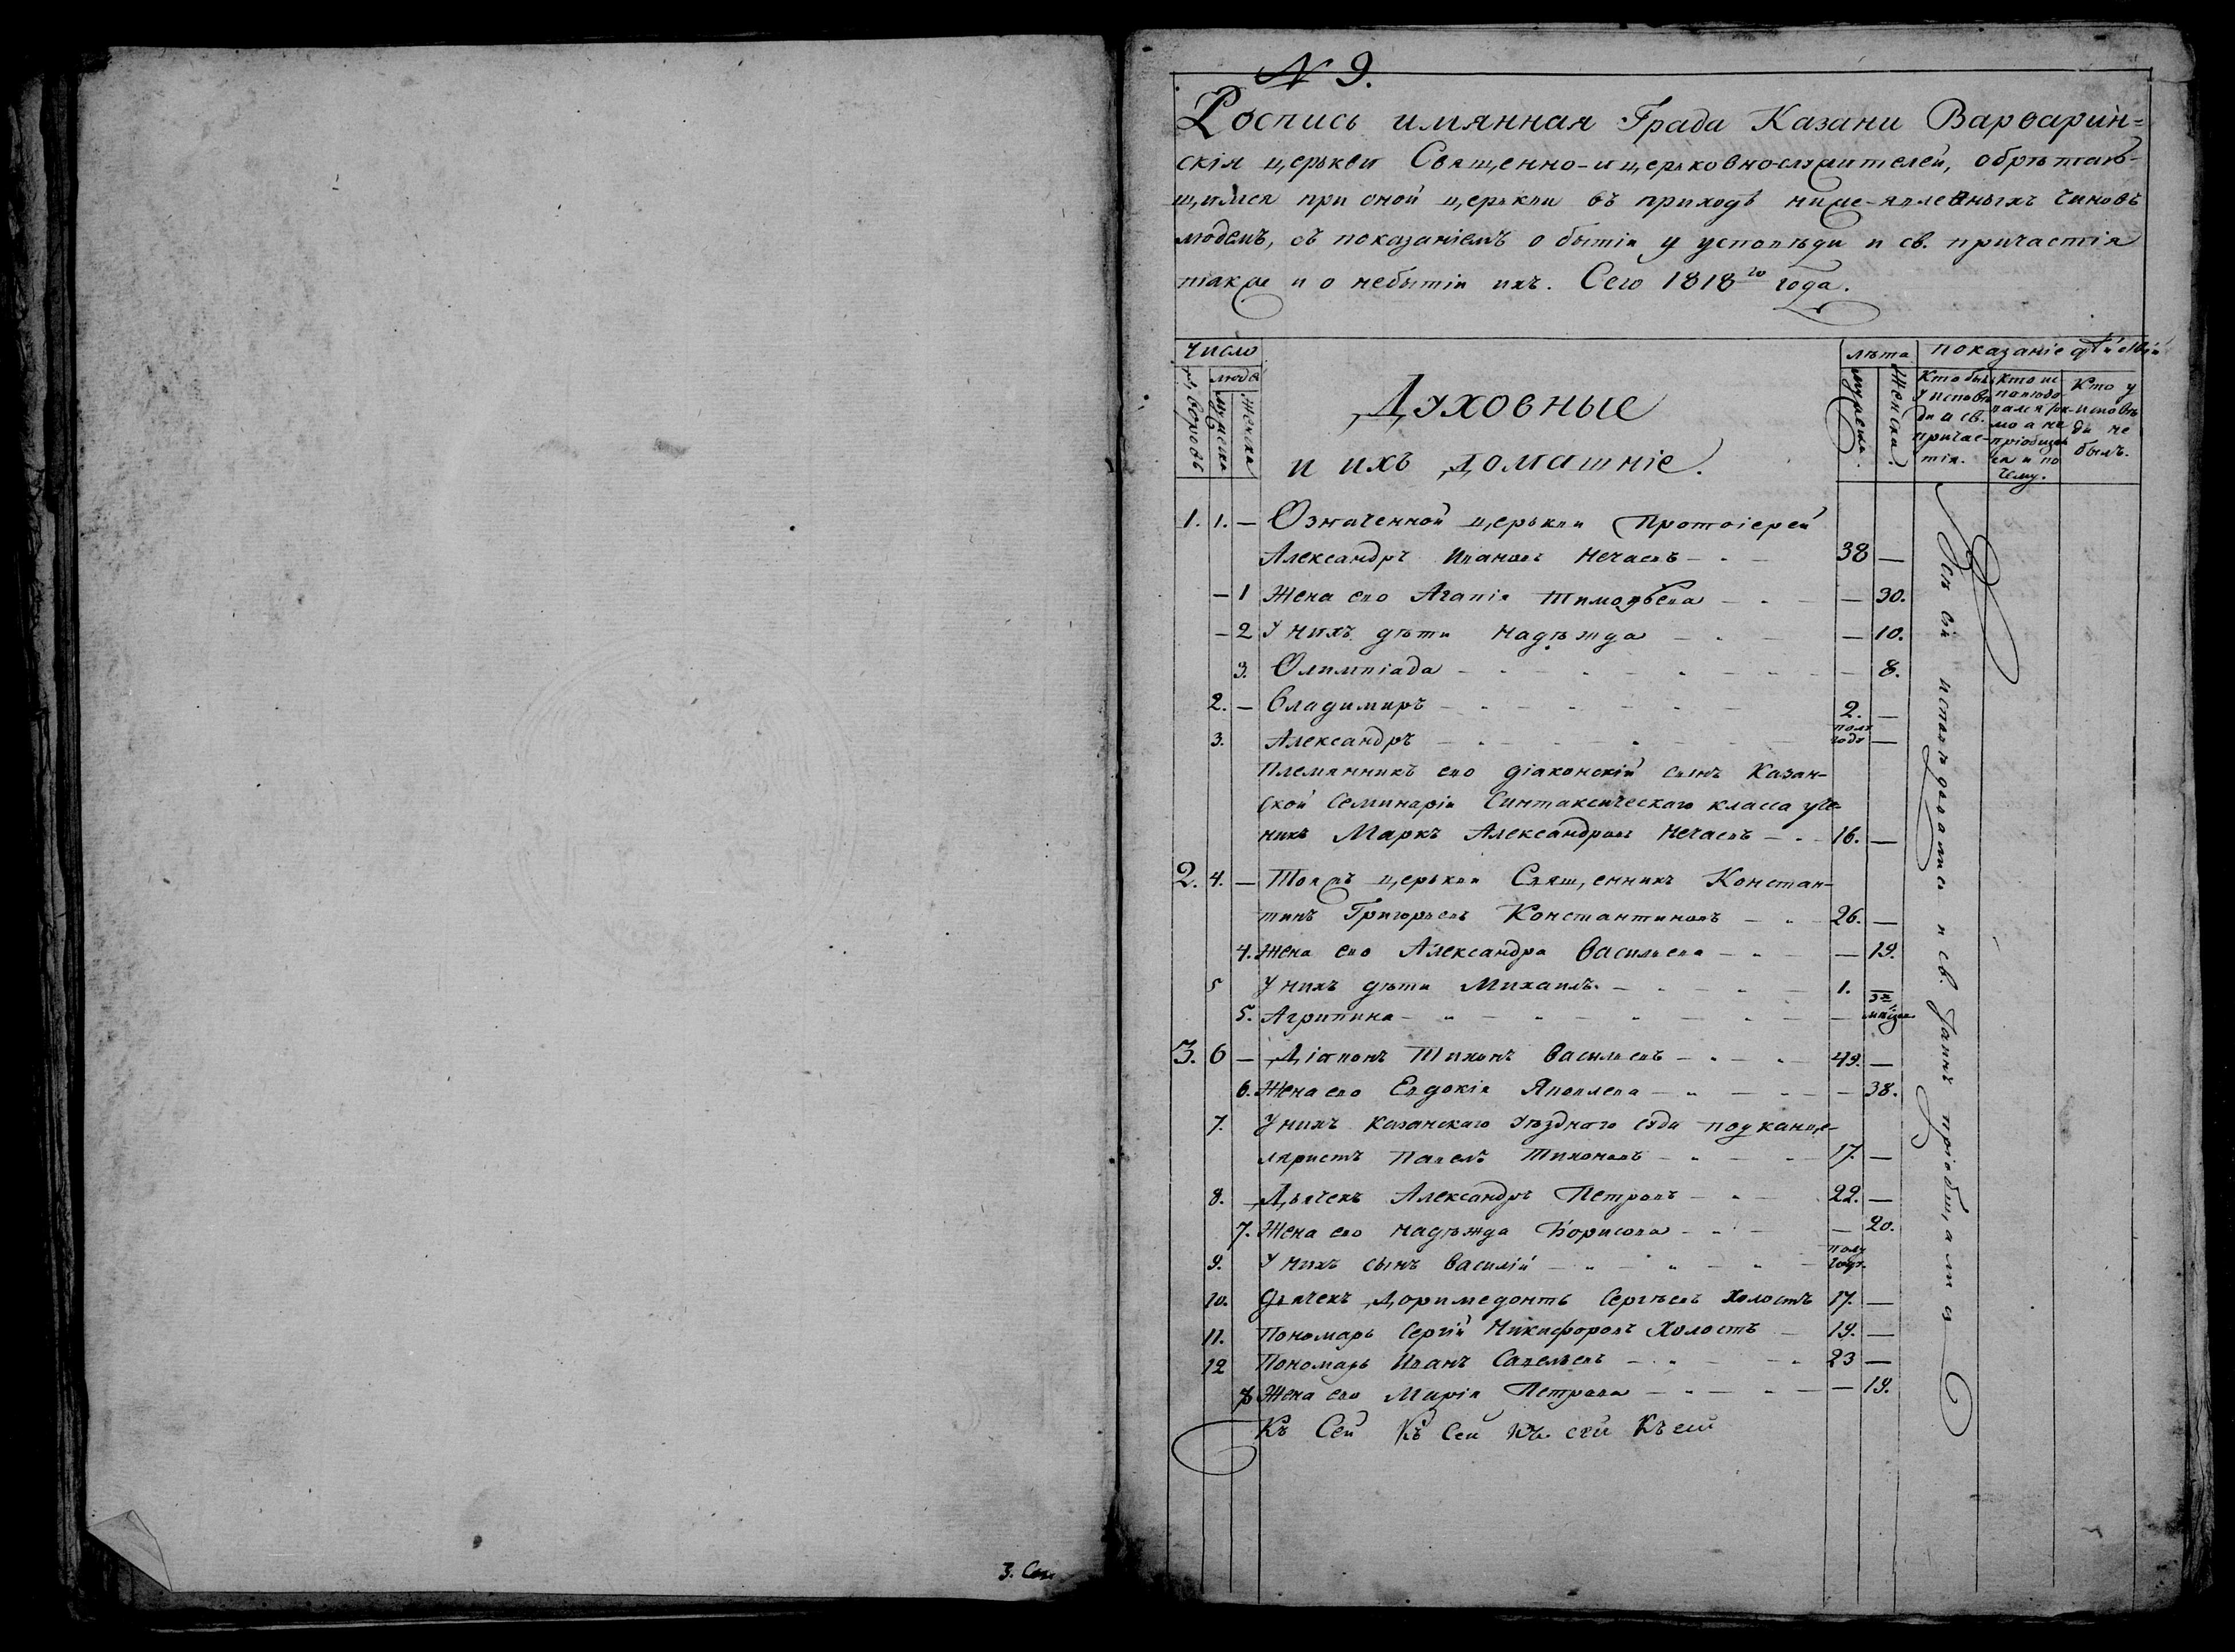 № 9.
Роспись имянная Града Казани Варварин-
скія церькви Священно-и церьковнослужителей, обрѣтаю-
щимся при оной церькви въ приходѣ ниже-явленныхъ чиновъ
людемъ, съ показаніемъ о бытіи у исповѣди и св. причастія
также и о небытіи ихъ. Сего 1818го года.
Число лѣта показаніе дѣйствій
дворовъ людей мужеска женска
Духовные
и ихъ домашніе.
мужеска. женска.
Кто былъ у исповѣди и св. причастія.
Кто у исповѣди не былъ.
1. 1. — Означенной церькви Протоіерей
Александръ Ивановъ Нечаевъ — 38 —
— 1 Жена его Агапія Тимофѣева — 30.
— 2 У нихъ дѣти Надѣжда — 10.
3. Олимпіада — 8.
2. — Владимиръ 2. —
3. Александръ полъ года —
Племянникъ его діаконскій сынъ Казан-
ской Семинаріи Синтаксическаго класса уче-
никъ Маркъ Александровъ Нечаевъ — 16. —
2. 4. — Тояжъ церькви Священникъ Констан-
тинъ Григорьевъ Константиновъ — 26. —
4. Жена его Александра Васильева — 19.
5 У нихъ дѣти Михаилъ — 1. —
5. Агрипина — 3хъ мѣсяц
3. 6 — Діаконъ Тихонъ Васильевъ — 49. —
6. Жена его Евдокія Яковлева — 38.
7. У нихъ Казанскаго Уѣзднаго суда подканце-
ляристъ Павелъ Тихоновъ — 17. —
8. Дьячекъ Александръ Петровъ — 22. —
7. Жена его Надѣжда Борисова — 20.
9. У нихъ сынъ Василій — полъ года.
10. Дьячекъ Доримедонтъ Сергѣевъ Холостъ 17. —
11. Пономарь Сергій Никифоровъ Холостъ — 19. —
12 Пономарь Иванъ Савельевъ — 23 —
8 Жена его Марія Петрова — 19.
Къ Сей Къ Сей Къ сей Къ сей
Всѣ сіи исповѣдовались и св. Таинъ пріобщались
3. Сем